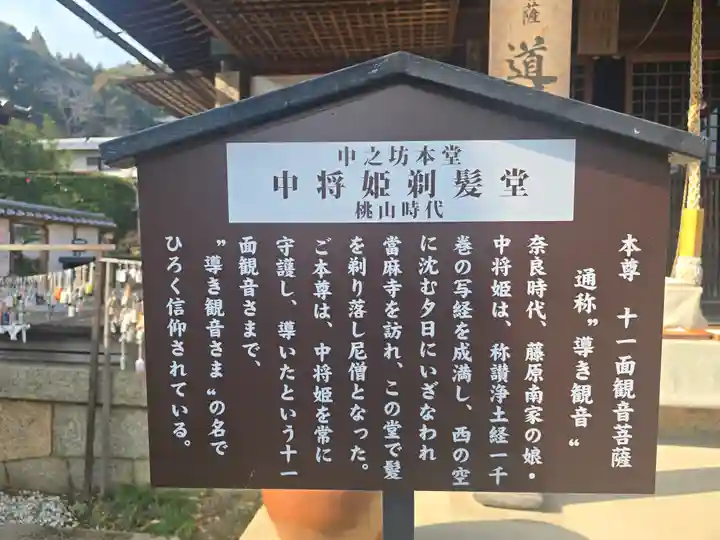 薩
導
中之坊本堂
中将姫剃髪堂
桃山時代
本尊　十一面観音菩薩
通称"導き観音"
奈良時代、藤原南家の娘・
中将姫は、称讃浄土経一千
巻の写経を成満し、西の空
に沈む夕日にいざなわれ
當麻寺を訪れ、この堂で髪
を剃り落し尼僧となった。
ご本尊は、中将姫を常に
守護し、導いたという十一
面観音さまで、
"導き観音さま"の名で
ひろく信仰されている。